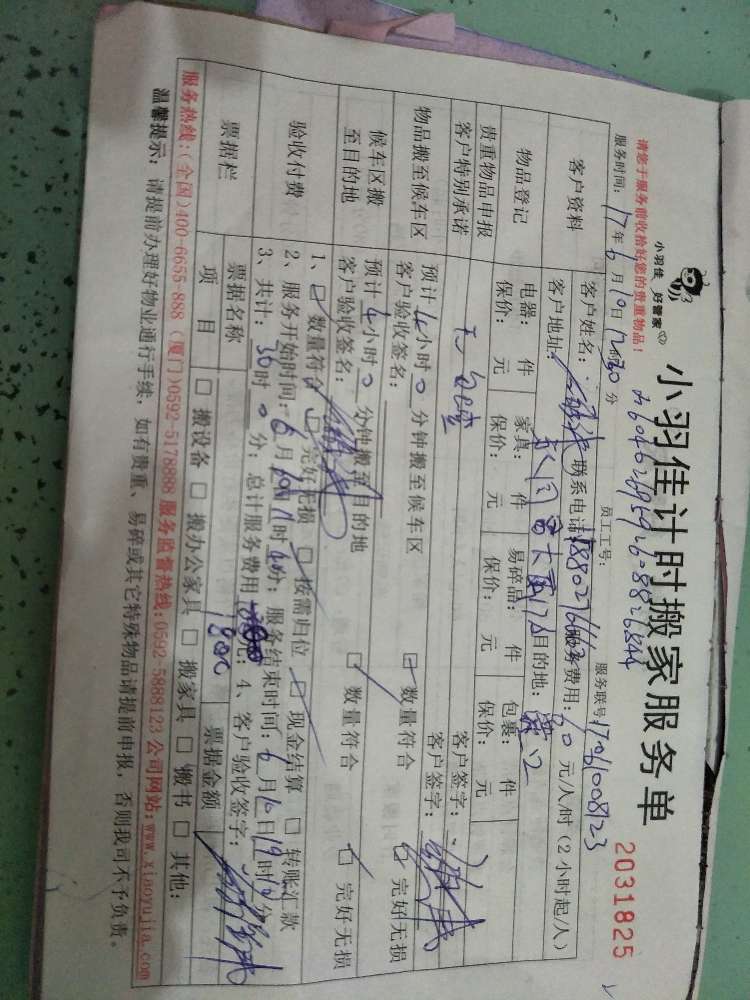 小羽佳 好管家
小羽佳计时搬家服务单
2031825
请您于服务前收拾好您的贵重物品！
服务时间：17年6月10日 分 员工工号： 服务联号17061008123
客户资料
客户姓名： 联系电话： 服务费用：60元/人/时（2小时起/人）
客户地址： 目的地：
物品登记
电器： 件 家具： 件 易碎品： 件 包裹： 件
保价： 元 保价： 元 保价： 元 保价： 元
贵重物品申报
客户特别承诺
客户签字：
客户签字：
物品搬至候车区
预计4小时0分钟搬至候车区 ☑数量符合 ☑完好无损
客户验收签名：
候车区搬
至目的地
预计4小时0分钟搬至目的地 ☑数量符合 ☑完好无损
客户验收签名：
验收付费
1、☑数量符合 ☑完好无损 ☑按需归位 ☑现金结算 □转账汇款
2、服务开始时间：6月10日 时 分；服务结束时间：6月10日19时 分
3、共计：30时0分；总计服务费用 元；4、客户验收签字：
1800
票据栏
票据名称 票据金额
项目 □搬设备 □搬办公家具 □搬家具 □搬书 □其他：
服务热线：（全国）400-6655-888（厦门）0592-5178888 服务监督热线：0592-5888123 公司网站：www.xiaoyujia.com
温馨提示：请提前办理好物业通行手续，如有贵重、易碎或其它特殊物品请提前申报，否则我司不予负责。